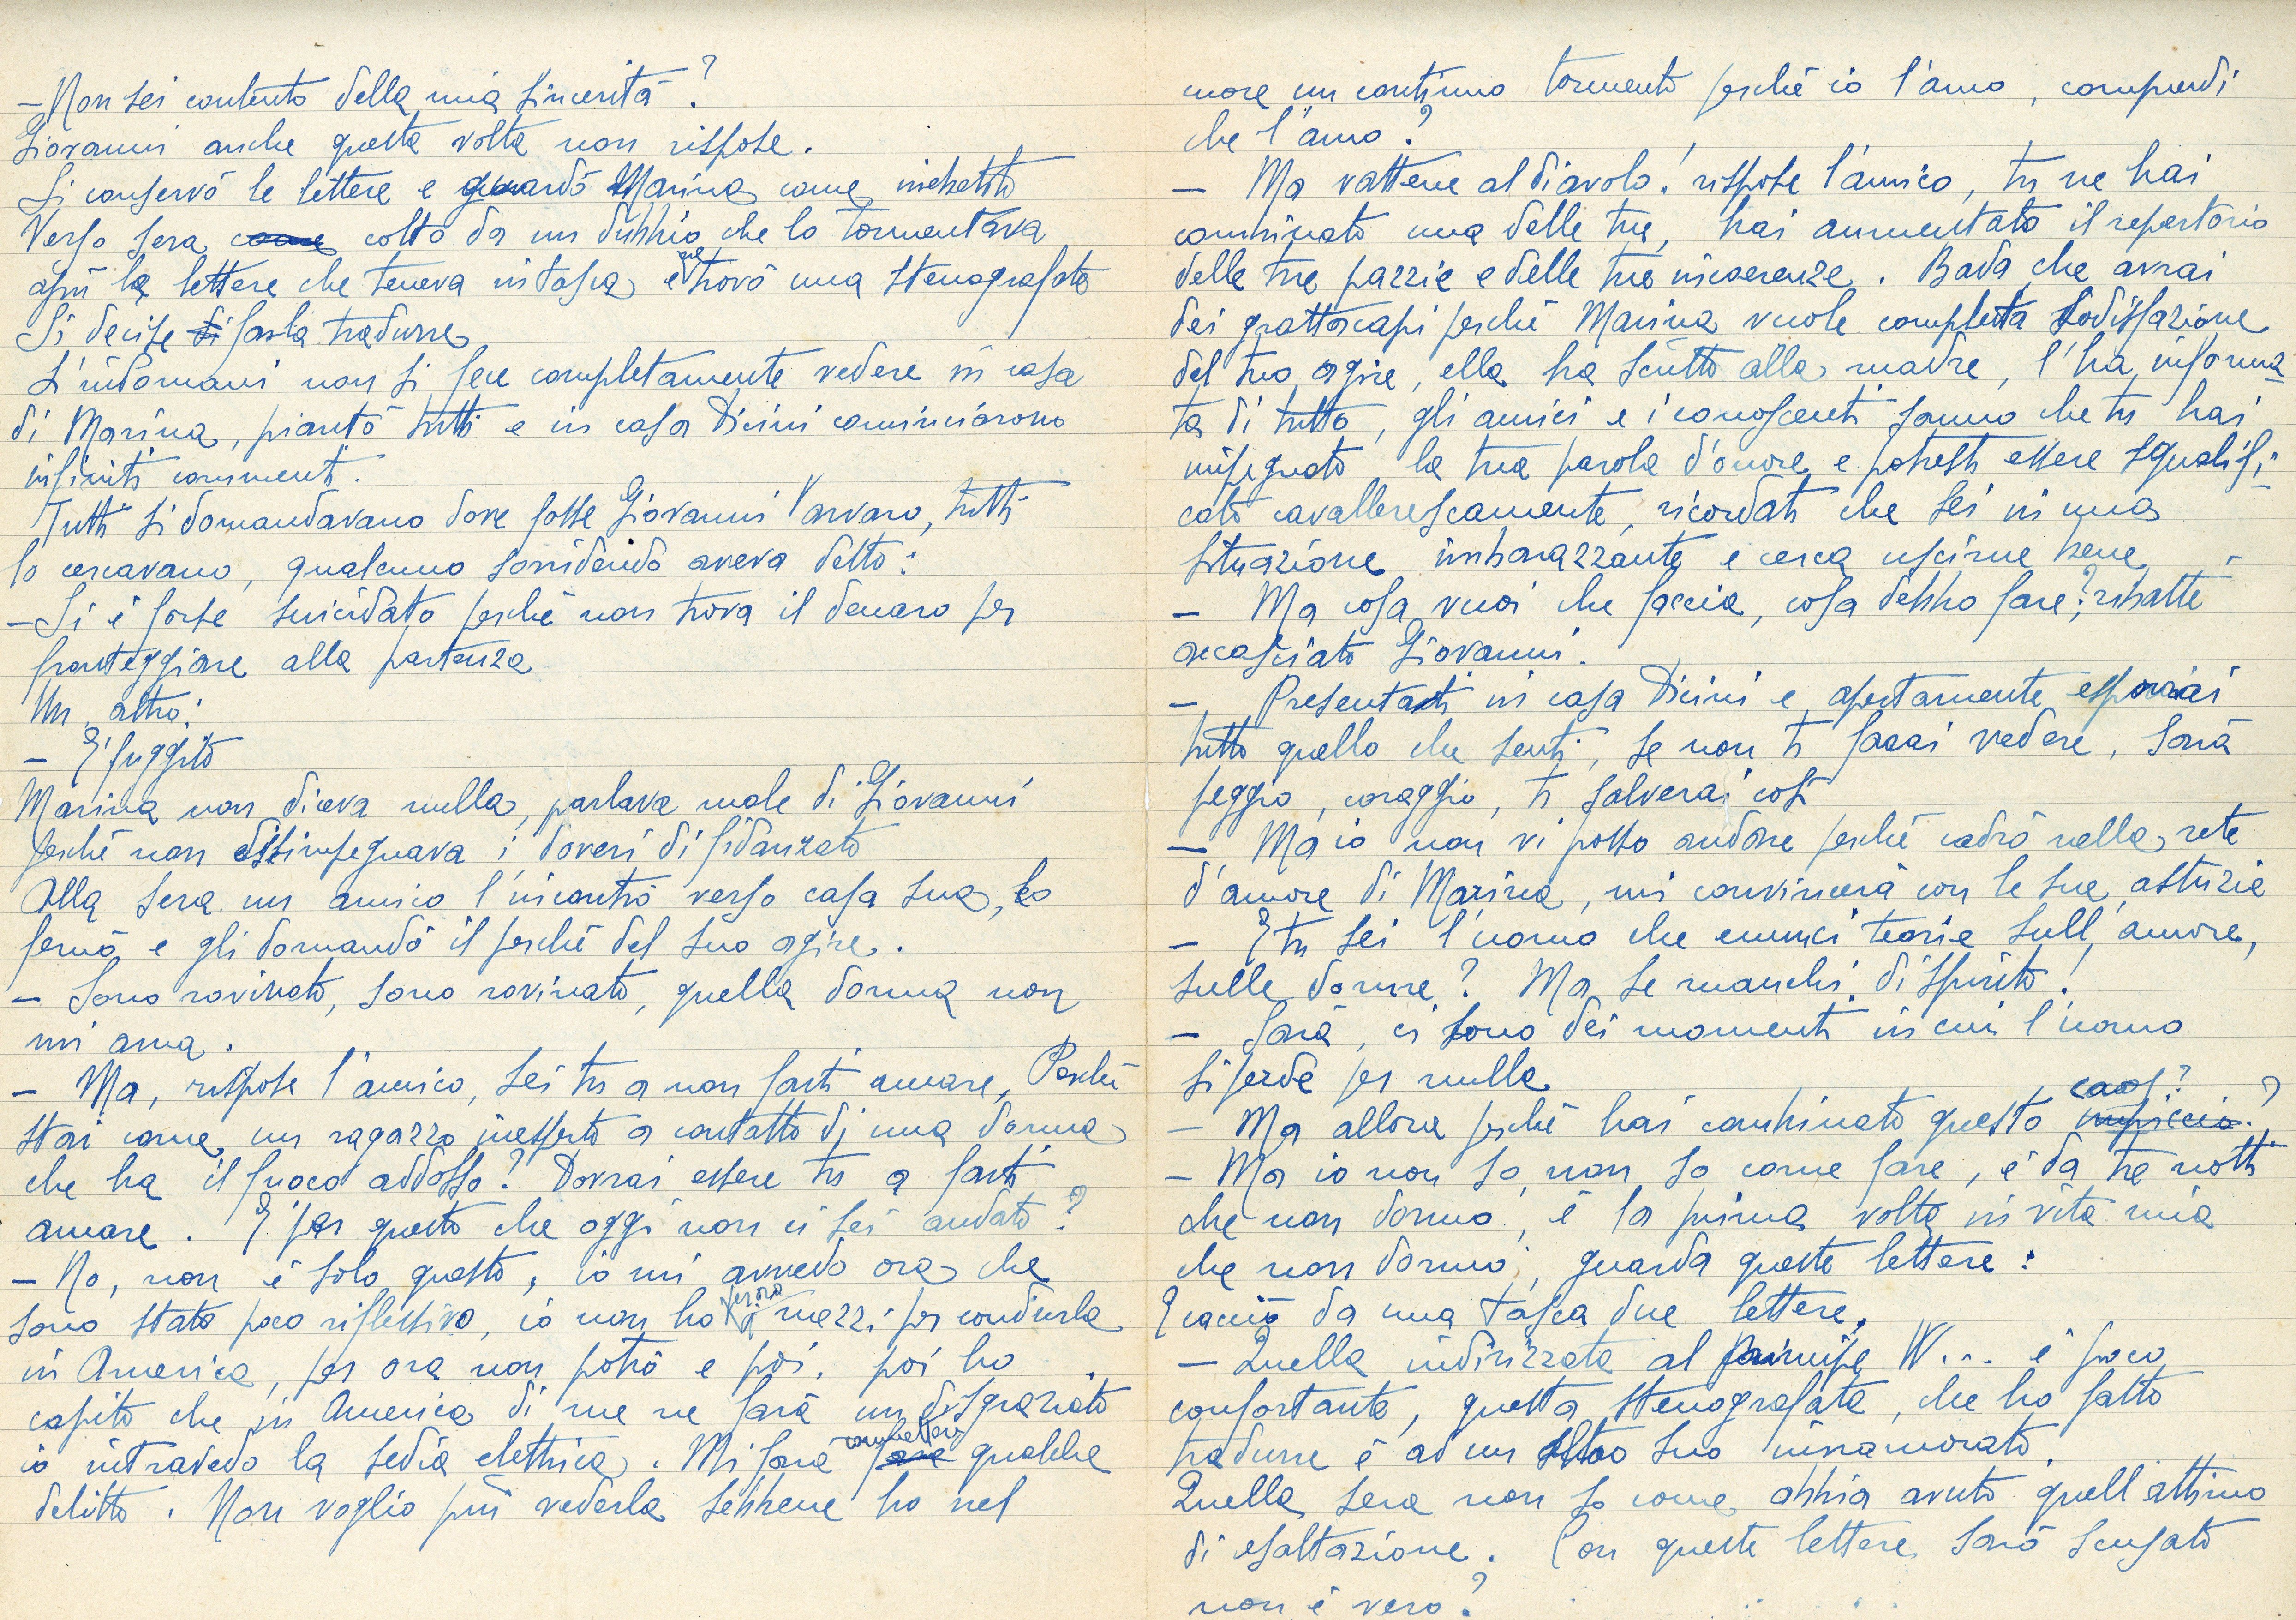 - Non sei contento della mia sincerità?
Giovanni anche questa volta non rispose.
Si conservò le lettere e guardò Marina come inebetito
Verso sera come colto da un dubbio che lo tormentava
aprì le lettere che teneva in tasca e ne trovò una stenografata
Si decise di farla tradurre
L'indomani non si fece completamente vedere in casa
di Marina, piantò tutti e in casa Dicini cominciarono
infiniti commenti.
Tutti si domandavano dove fosse Giovanni Varvaro, tutti
lo cercavano, qualcuno sorridendo aveva detto:
- Si è forse suicidato perché non trova il denaro per
fronteggiare alla partenza
Un altro:
- E' fuggito
Marina non diceva nulla, parlava male di Giovanni
perché non disimpegnava i doveri di fidanzato
Alla sera un amico l'incontrò verso casa sua, lo
fermò e gli domandò il perché del suo agire.
- Sono rovinato, sono rovinato, quella donna non
mi ama.
- Ma, rispose l'amico, sei tu a non farti amare. Perché
stai come un ragazzo inesperto a contatto di una donna
che ha il fuoco addosso? Dovrai essere tu a farti
amare. E' per questo che oggi non ci sei andato?
- No, non è solo questo, io mi avvedo ora che
sono stato poco riflessivo, io non ho per ora i mezzi per condurla
in America, per ora non potrò e poi. poi ho
capito che in America di me ne farà un disgraziato
io intravedo la sedia elettrica. Mi farà fare commettere qualche
delitto. Non voglio più vederla sebbene ho nel
cuore un continuo tormento perché io l'amo, comprendi
che l'amo?
- Ma vattene al diavolo! rispose l'amico, tu ne hai
combinato una delle tue, hai aumentato il repertorio
delle tue pazzie e delle tue incoerenze. Bada che avrai
dei grattacapi perché Marina vuole completa sodisfazione
del tuo agire, ella ha scritto alla madre, l'ha informa-
ta di tutto, gli amici e i conoscenti sanno che tu hai
impegnato la tua parola d'onore e potresti essere squalifi-
cato cavallerescamente, ricordati che sei in una
situazione imbarazzante e cerca uscirne bene
- Ma cosa vuoi che faccia, cosa debbo fare?, ribatté
accasciato Giovanni.
- Presentati in casa Dicini e apertamente esporrai
tutto quello che senti, se non ti farai vedere, sarà
peggio, coraggio, ti salverai così
- Ma io non vi posso andare perché cadrò nella rete
d'amore di Marina, mi convincerà con le sue astuzie
- E tu sei l'uomo che enunci teorie sull'amore,
sulle donne? Ma se manchi di spirito!
- Sarà, ci sono dei momenti in cui l'uomo
si perde per nulla
- Ma allora perché hai combinato questo impiccio? caos?
- Ma io non so, non so come fare, è da tre notti
che non dormo, è la prima volta in vita mia
che non dormo, guarda queste lettere:
E cacciò da una tasca due lettere.
- Quella indirizzata al principe W... è poco
confortante, questa stenografata, che ho fatto
tradurre è ad un altro suo innamorato.
Quella sera non so come abbia avuto quell'attimo
di esaltazione. Con queste lettere sarò scusato
non è vero?